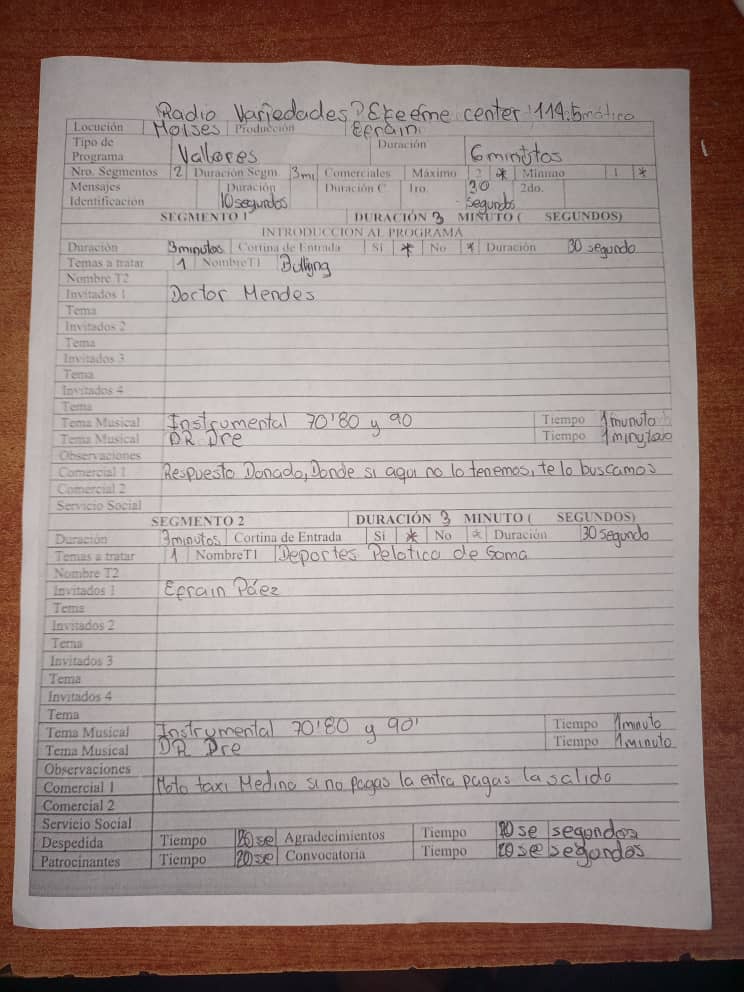 Radio Variedades? Efeeme center 114.5 mática
Locución Moises Producción Efrain
Tipo de Programa Valores Duración 6 minutos
Nro. Segmentos 2 Duración Segm. 3mi Comerciales Máximo 2 * Minimo 1 *
Mensajes Identificación Duración 10 segundos Duración C 1ro. 30 segundos 2do.
SEGMENTO 1 DURACIÓN 3 MINUTO ( SEGUNDOS)
INTRODUCCION AL PROGRAMA
Duración 3 minutos Cortina de Entrada Si * No * Duración 30 segundo
Temas a tratar 1 Nombre T1 Bullyng
Nombre T2
Invitados 1 Doctor Mendes
Tema
Invitados 2
Tema
Invitados 3
Tema
Invitados 4
Tema
Tema Musical Instrumental 70'80 y 90 Tiempo 1 munuto
Tema Musical DR Dre Tiempo
Observaciones
Comercial 1 Respuesto Donado, Donde si aqui no lo tenemos, te lo buscamos
Comercial 2
Servicio Social
SEGMENTO 2 DURACIÓN 3 MINUTO ( SEGUNDOS)
Duración 3 minutos Cortina de Entrada Si * No * Duración 30 segundo
Temas a tratar 1 Nombre T1 Deportes Pelotica de Goma
Nombre T2
Invitados 1 Efrain Páez
Tema
Invitados 2
Tema
Invitados 3
Tema
Invitados 4
Tema
Tema Musical Instrumental 70'80 y 90' Tiempo 1 minuto
Tema Musical DR Dre Tiempo 1 minuto
Observaciones
Comercial 1 Moto taxi Medina si no pagas la entra pagas la salida
Comercial 2
Servicio Social
Despedida Tiempo 20 se Agradecimientos Tiempo se segundos
Patrocinantes Tiempo 20 se Convocatoria Tiempo 20 se segundos